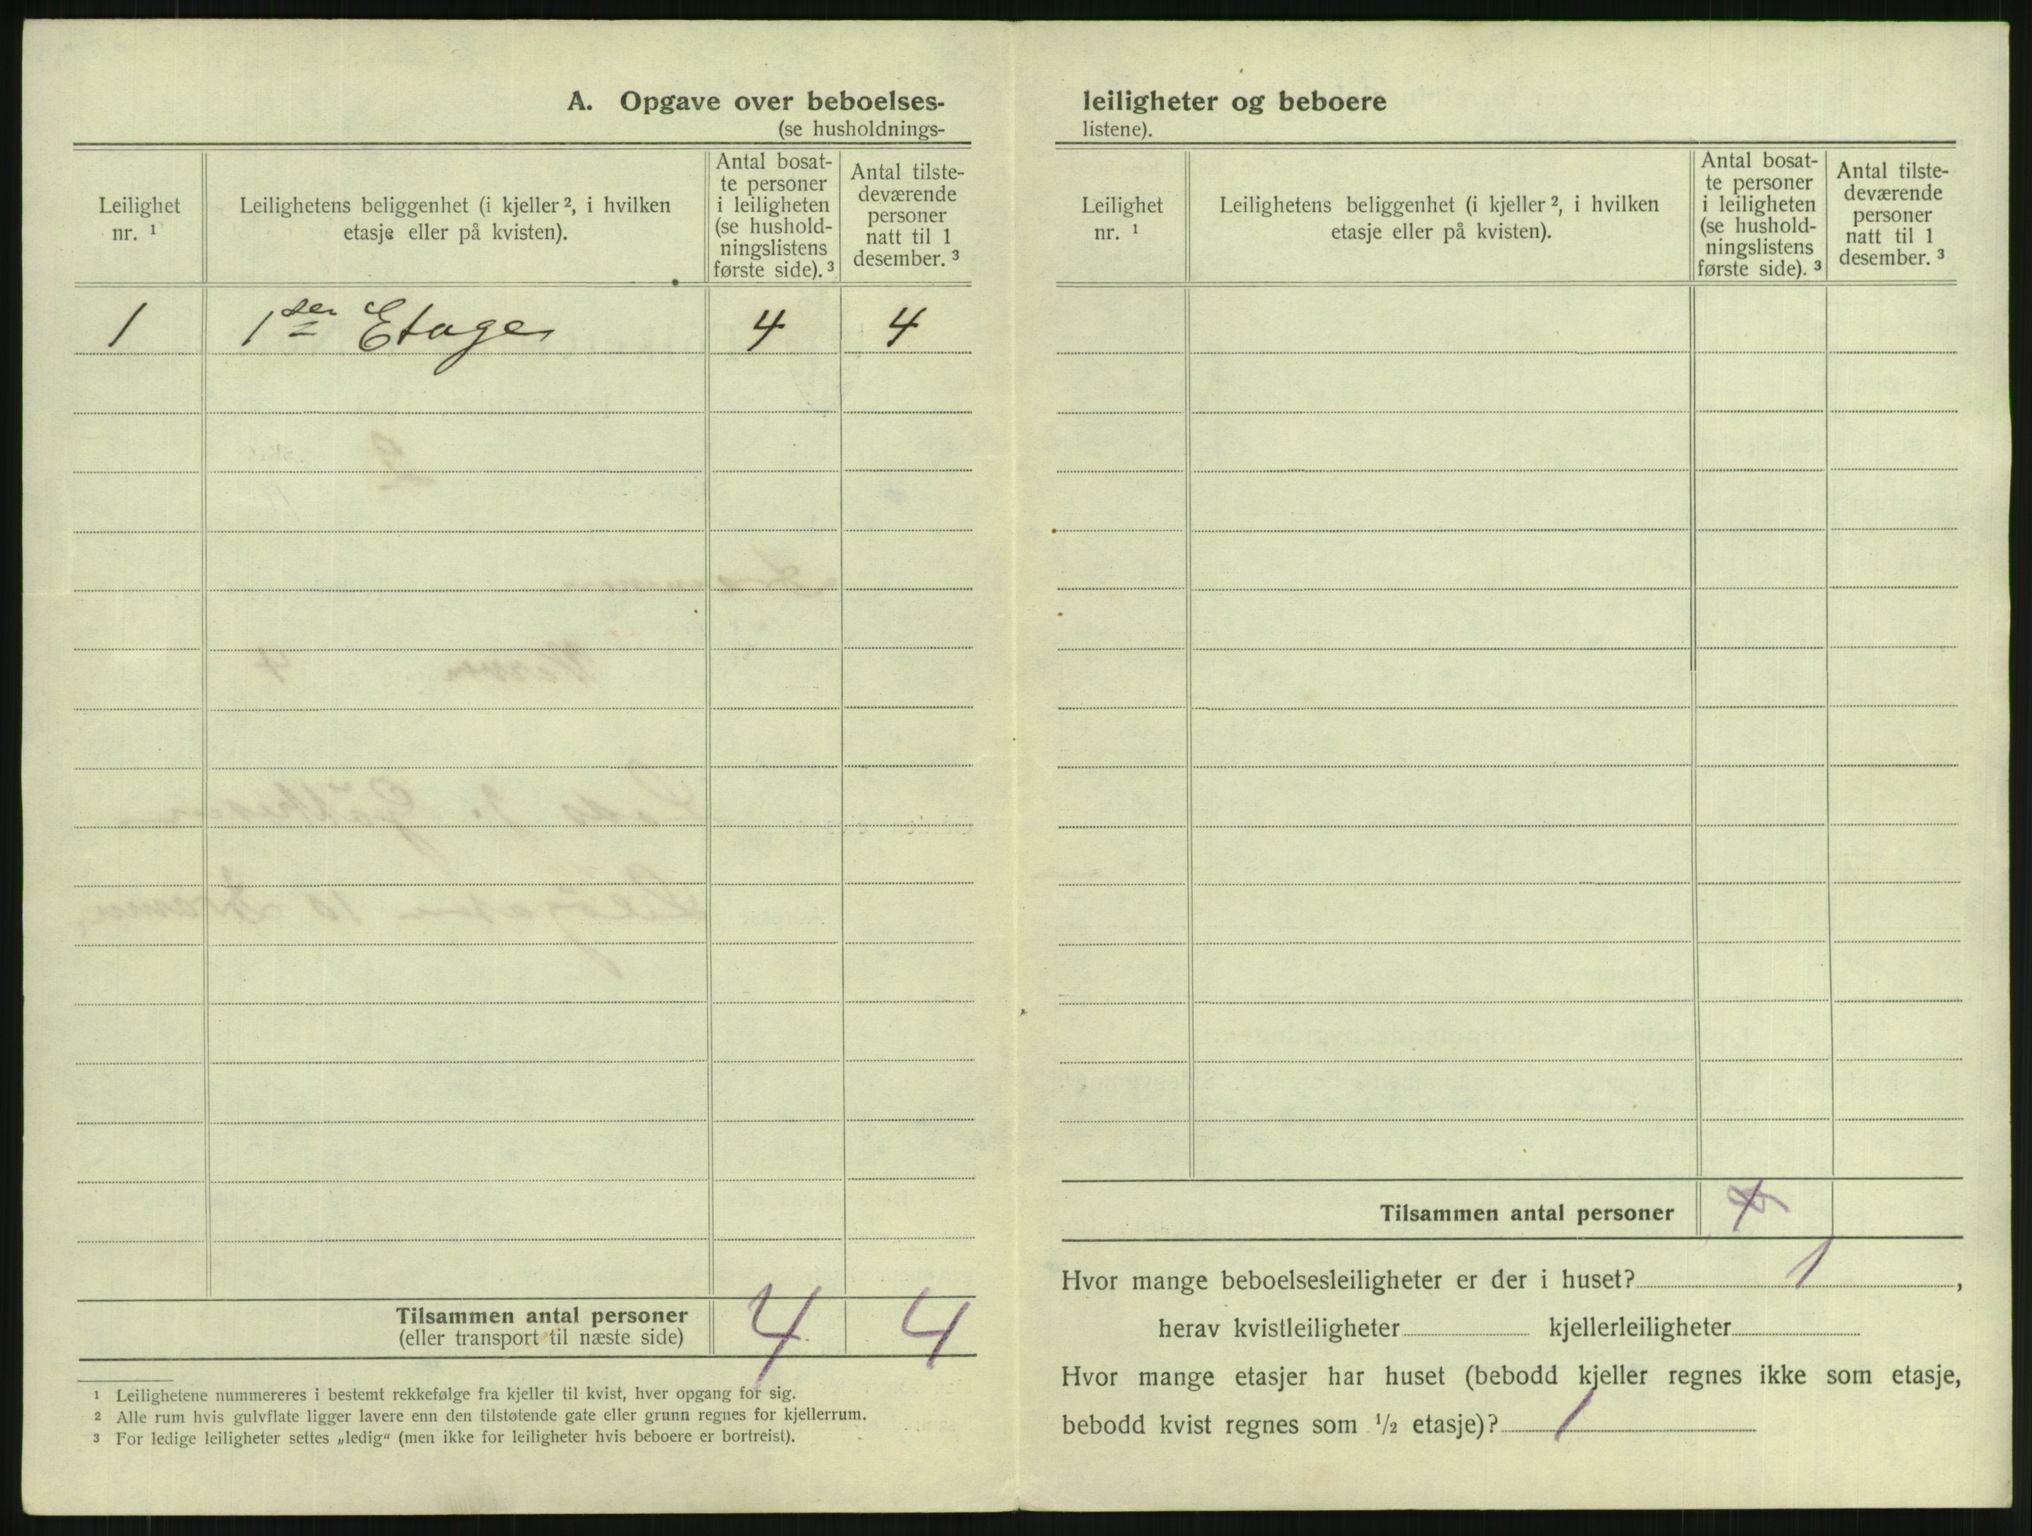 A. Opgave over beboelses-
(se husholdnings-
Leilighet nr. ¹
Leilighetens beliggenhet (i kjeller ², i hvilken
etasje eller på kvisten).
Antal bosat-
te personer
i leiligheten
(se hushold-
ningslistens
første side). ³
Antal tilste-
deværende
personer
natt til 1
desember. ³
1 1ster Etage 4 4
Tilsammen antal personer 4 4
(eller transport til næste side)
¹ Leilighetene nummereres i bestemt rekkefølge fra kjeller til kvist, hver opgang for sig.
² Alle rum hvis gulvflate ligger lavere enn den tilstøtende gate eller grunn regnes for kjellerrum.
³ For ledige leiligheter settes „ledig“ (men ikke for leiligheter hvis beboere er bortreist).
leiligheter og beboere
listene).
Leilighet
nr. ¹
Leilighetens beliggenhet (i kjeller ², i hvilken
etasje eller på kvisten).
Antal bosat-
te personer
i leiligheten
(se hushold-
ningslistens
første side). ³
Antal tilste-
deværende
personer
natt til 1
desember. ³
Tilsammen antal personer 4
Hvor mange beboelsesleiligheter er der i huset? 1,
herav kvistleiligheter kjellerleiligheter
Hvor mange etasjer har huset (bebodd kjeller regnes ikke som etasje,
bebodd kvist regnes som ½ etasje)? 1